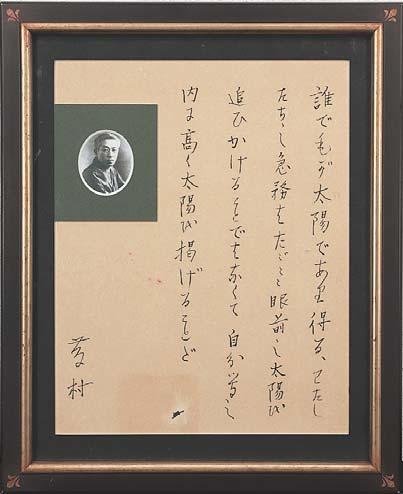 誰でもが太陽であり得る、わたし
たちの急務はたゞ〻〻眼前の太陽を
追ひかけることではなくて自分等の
内に高く太陽を掲げることだ
藤村